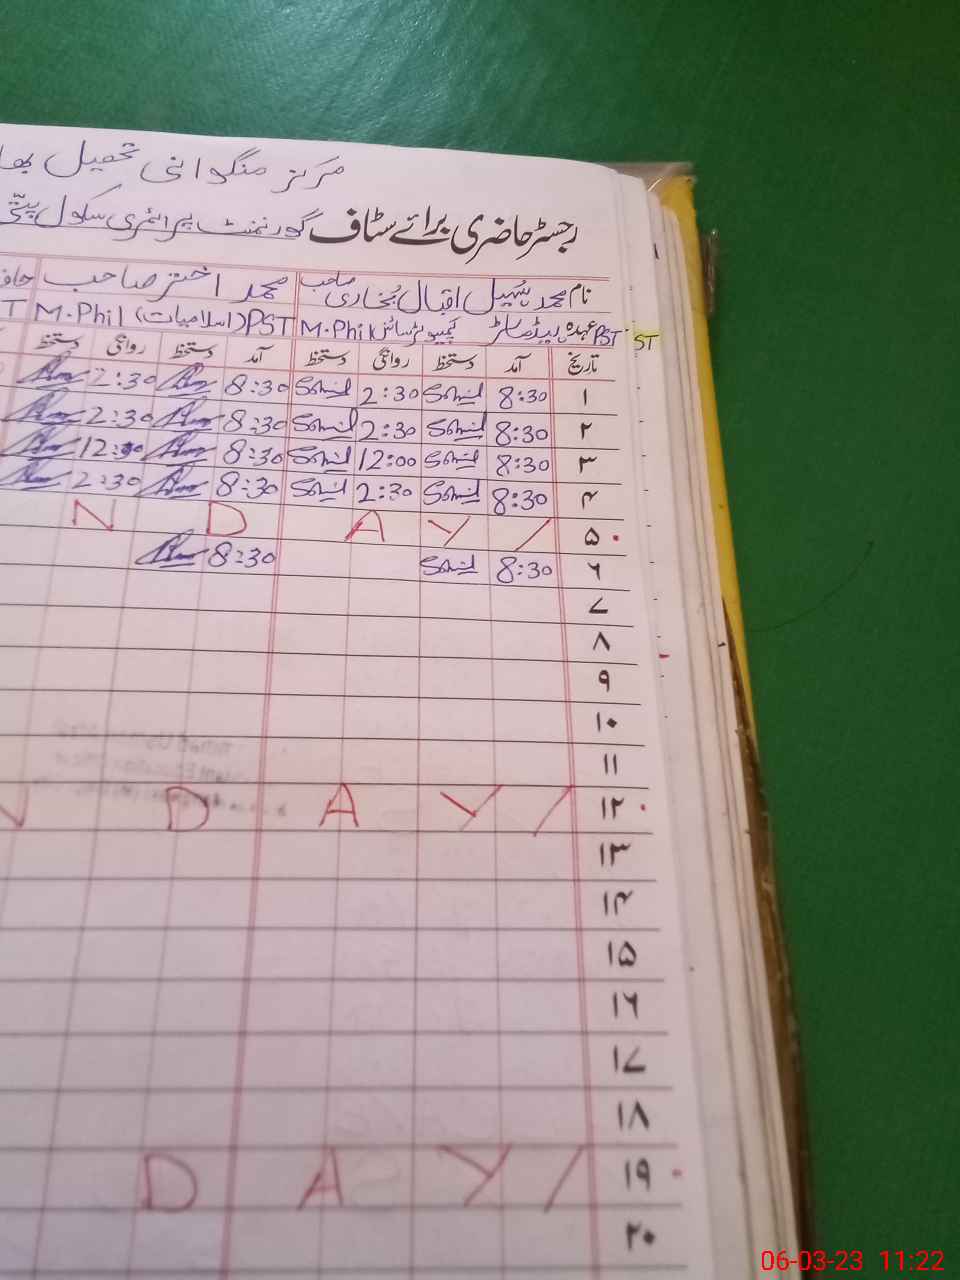 مرکز منگوانی تحصیل بھا
رجسٹر حاضری برائے سٹاف گورنمنٹ پرائمری سکول
نام محمد سہیل اقبال بُخاری صاحب محمد اختر صاحب حاف
عہدہ ہیڈماسٹر PST کمپیوٹر سائنس M.Phil PST (اسلامیات) M.Phil T
ST
تاریخ آمد دستخط روانگی دستخط آمد دستخط روانگی دستخط
۱ 8:30 Sohail 2:30 Sohail 8:30 2:30
۲ 8:30 Sohail 2:30 Sohail 8:30 2:30
۳ 8:30 Sohail 12:00 Sohail 8:30 12:00
۴ 8:30 Sohail 2:30 Sohail 8:30 2:30
N D A Y / ۵
۶ 8:30 Sohail 8:30
۷
۸
۹
۱۰
۱۱
N D A Y / ۱۲
۱۳
۱۴
۱۵
۱۶
۱۷
۱۸
D A Y / ۱۹
۲۰
06-03-23 11:22